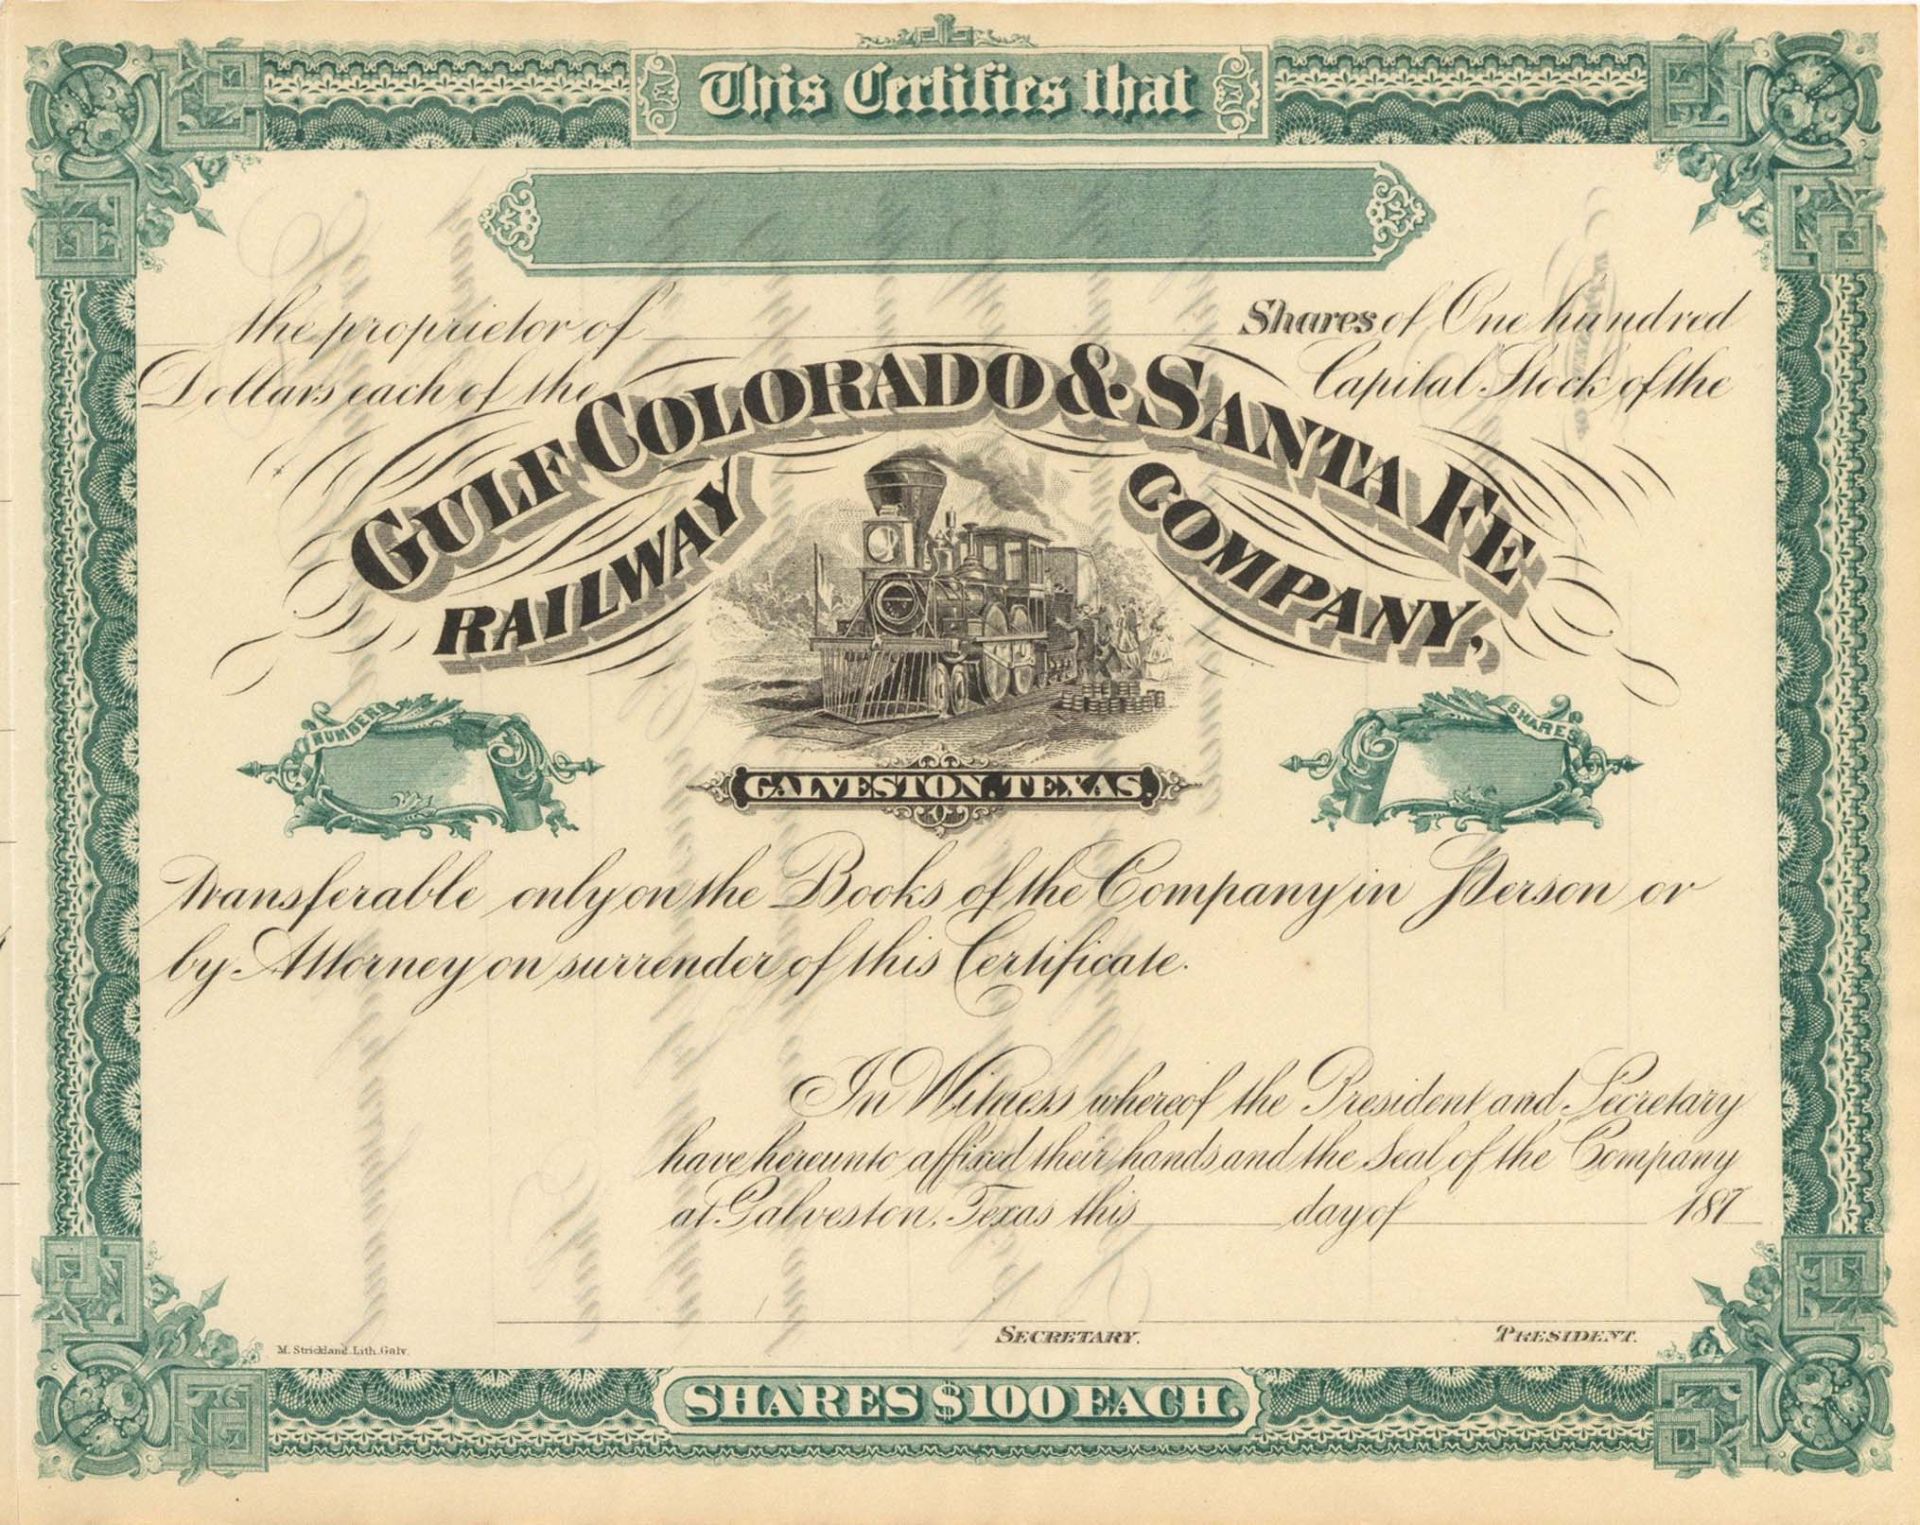 This Certifies that
the proprietor of Shares of One hundred
Dollars each of the Capital Stock of the
GULF COLORADO & SANTA FE
RAILWAY COMPANY,
NUMBER
SHARES
GALVESTON, TEXAS.
transferable only on the Books of the Company in Person or
by Attorney on surrender of this Certificate.
In Witness whereof the President and Secretary
have hereunto affixed their hands and the Seal of the Company
at Galveston, Texas this day of 187
SECRETARY.
PRESIDENT.
M. Strickland. Lith. Galv.
SHARES $100 EACH.